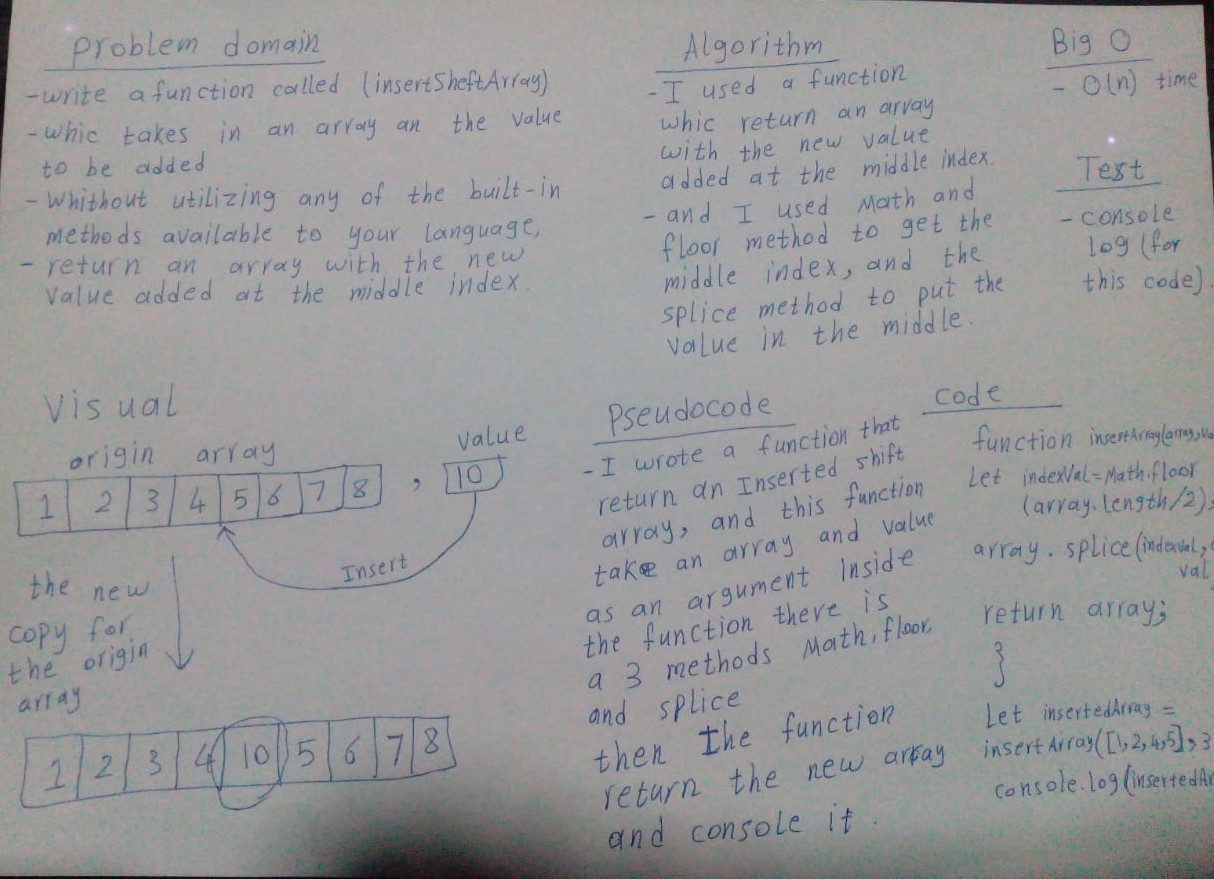 Problem domain
- write a function called (insertSheftArray)
- whic takes in an array an the value
to be added
- Whithout utilizing any of the built-in
methods available to your language,
- return an array with the new
value added at the middle index.
Algorithm
- I used a function
whic return an array
with the new value
added at the middle index.
- and I used Math and
floor method to get the
middle index, and the
splice method to put the
value in the middle.
Big O
- O(n) time
Test
- console
log (for
this code).
Visual
origin array
value
1 2 3 4 5 6 7 8 , 10
Insert
the new
copy for
the origin
array
1 2 3 4 10 5 6 7 8
Pseudocode
- I wrote a function that
return an Inserted shift
array, and this function
take an array and value
as an argument Inside
the function there is
a 3 methods Math, floor,
and splice
then The function
return the new array
and console it.
code
function insertArray(array,
Let indexVal=Math.floor
(array.length/2);
array. splice(indexval,
val
return array;
}
Let insertedArray =
insertArray([1,2,4,5],3
console.log(insertedAr